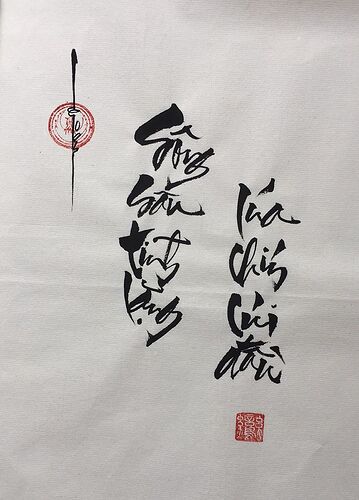 Sông
sâu
tĩnh
lặng
lúa
chín
cúi
đầu